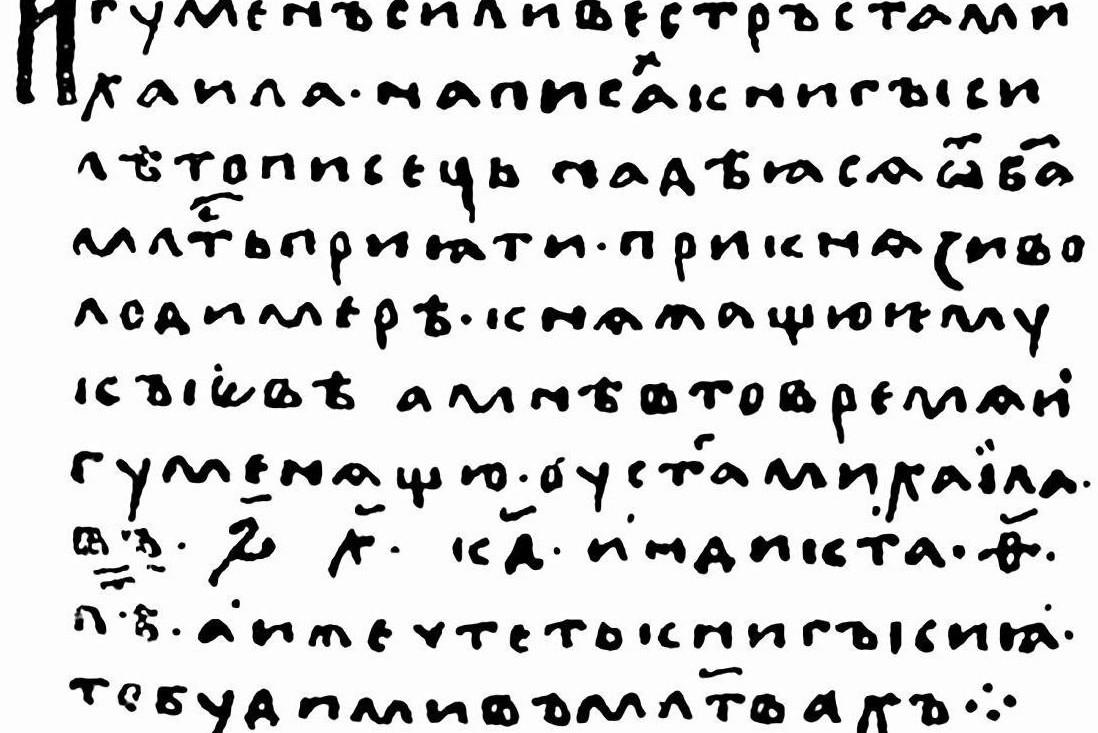 Игуменъ силивестръ стаⷢ҇ми
хаила· написаⷯ книгы си
лѣтописець надѣꙗсѧ ѿ ба҃
млⷭ҇ть приꙗти· при кнѧзи во
лодимерѣ· кнѧжащю ѥму
кыѥвѣ а мнѣ в то времѧ и
гуменѧщю· оу стаⷢ҇ михаїла·
въ · ҂ѕ҃ х҃· к҃д· индикта· ѳ҃·
л·ѣ· а иже чтеть книгы сиꙗ·
то буди ми въ млт҃вахъ ⁘